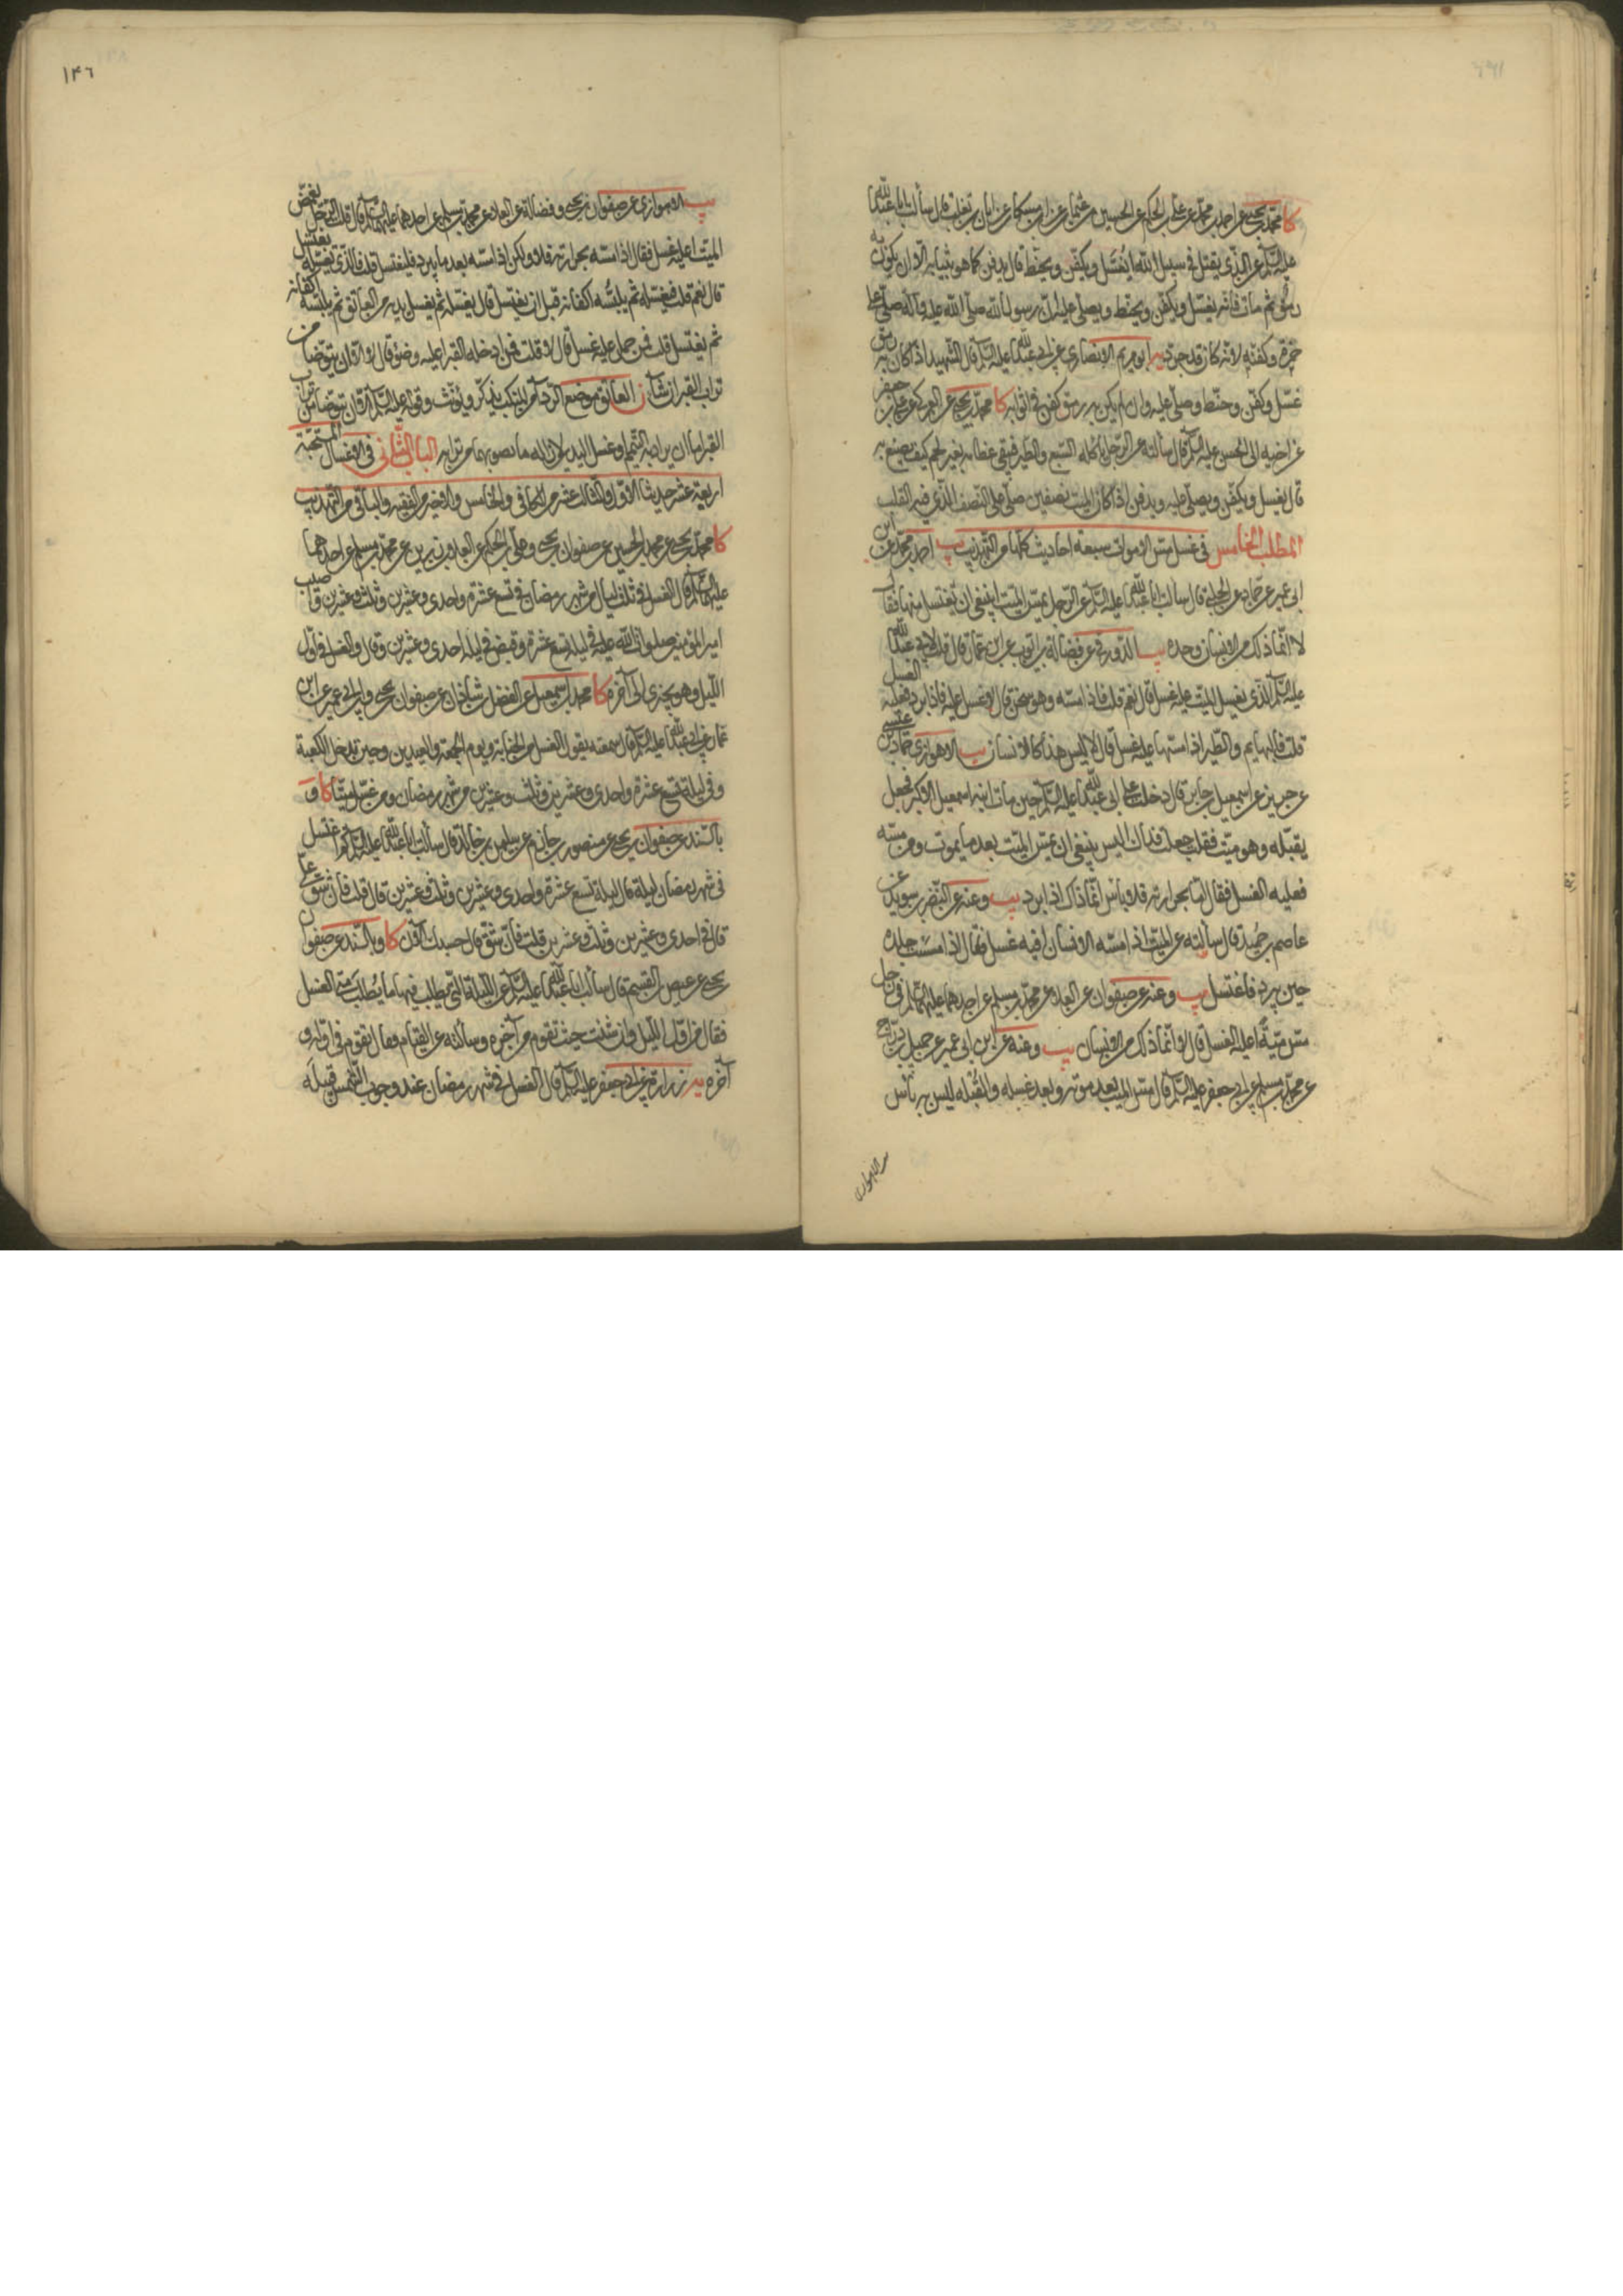 كا محمد بن يحيى عن احمد بن محمد عن علي بن الحكم عن الحسين بن عثمان عن ابن مسكان عن ابان بن تغلب قال سألت ابا عبد الله
عليه السلم عن الذي يقتل في سبيل الله ايغسل ويكفن ويحنط قال يدفن كما هو بثيابه الا ان يكون به
رمق ثم مات فانه يغسل ويكفن ويحنط ويصلى عليه ان رسول الله صلى الله عليه وآله صلى على
حمزة وكفنه لانه كان قد جرد يه ابو مريم الانصاري عن ابي عبد الله عليه السلم قال الشهيد اذا كان به رمق
غسل وكفن وحنط وصلي عليه وان لم يكن به رمق كفن في اثوابه كا محمد بن يحيى عن العمركي عن علي بن جعفر
عن اخيه ابى الحسن عليه السلم قال سألته عن الرجل يأكله السبع والطير فيبقى عظامه بغير لحم كيف يصنع به
قال يغسل ويكفن ويصلى عليه ويدفن اذا كان الميت نصفين صلي على النصف الذي فيه القلب
المطلب الخامس في غسل مس الاموات سبعة احاديث كلها من التهذيب يب احمد بن محمد عن ابن
ابى عمير عن حماد عن الحلبي قال سألت ابا عبد الله عليه السلم عن الرجل يمس الميت اينبغي ان يغتسل منها فقال
لا انما ذلك من الانسان وحده يب الدورقي عن فضالة بن ايوب عن ابن عمار قال قلت لابي عبد الله
عليه السلم الذي يغسل الميت عليه غسل قال نعم قلت فاذا مسه وهو سخن قال لا غسل عليه فاذا برد فعليه الغسل
قلت فالبهايم والطير اذا مسها عليه غسل قال لا ليس هذا كالانسان يب الاهوازي عن حماد بن عيسى
عن حريز عن اسمعيل بن جابر قال دخلت على ابى عبد الله عليه السلم حين مات ابنه اسمعيل الاكبر فجعل
يقبله وهو ميت فقلت جعلت فداك اليس ينبغي ان يمس الميت بعد ما يموت ومن مسه
فعليه الغسل فقال اما بحرارته فلا بأس انما ذاك اذا برد يب وعنه عن النضر بن سويد عن
عاصم بن حميد قال سألته عن الميت اذا مسه الانسان افيه غسل فقال اذا مسست جلده
حين يبرد فاغتسل يب وعنه عن صفوان عن العلا عن محمد بن مسلم عن احدهما عليهما السلم في رجل
مس ميتة اعليه الغسل قال لا انما ذلك من الانسان يب وعنه عن ابن ابى عمير عن جميل بن دراج
عن محمد بن مسلم عن ابى جعفر عليه السلم قال مس الميت بعد موته وبعد غسله والقبلة ليس به بأس
يب الاهوازي
١٤٦
يب الاهوازي عن صفوان بن يحيى وفضالة عن العلا عن محمد بن مسلم عن احدهما عليهما السلم قال قلت الرجل يغمض
الميت اعليه غسل فقال اذا مسه بحرارته فلا ولكن اذا مسه بعد ما يبرد فليغتسل قلت فالذي يغسله يغتسل
قال نعم قلت فيغسله ثم يلبسه اكفانه قبل ان يغتسل قال يغسله ثم يغسل يديه من العاتق ثم يلبسه اكفانه
ثم يغتسل قلت فمن حمله عليه غسل قال لا قلت فمن ادخله القبر اعليه وضوء قال لا الا ان يتوضأ من
تراب القبر ان شاء ن العاتق موضع الرداء من المنكب يذكر ويؤنث وقوله عليه السلم الا ان يتوضأ من تراب
القبر اما ان يراد به التيمم او غسل اليد لازالة ما يصيبهما من ترابه الباب الثاني في الاغسال المستحبة
اربعة عشر حديثا الاول والثالث عشر من الكافي والخامس والاخير من الفقيه والباقي من التهذيب
كا محمد بن يحيى عن محمد بن الحسين عن صفوان بن يحيى وعلي بن الحكم عن العلا بن رزين عن محمد بن مسلم عن احدهما
عليهما السلم قال الغسل في ثلث ليال من شهر رمضان في تسع عشرة واحدى وعشرين وثلث وعشرين واصيب
امير المؤمنين صلوات الله عليه في ليلة تسع عشرة وقبض في ليلة احدى وعشرين وقال والغسل في اول
الليل وهو يجزي الى آخره كا محمد بن اسمعيل عن الفضل بن شاذان عن صفوان بن يحيى وابن ابى عمير عن ابن
عمار عن ابى عبد الله عليه السلم قال سمعته يقول الغسل من الجنابة ويوم الجمعة والعيدين وحين تدخل الكعبة
وفي ليلة تسع عشرة واحدى وعشرين وثلث وعشرين من شهر رمضان ومن غسل ميتا كا و
بالسند عن صفوان بن يحيى عن منصور بن حازم عن سليمن بن خالد قال سألت ابا عبد الله عليه السلم كم اغتسل
في شهر رمضان ليلة قال ليلة تسع عشرة واحدى وعشرين وثلث وعشرين قال قلت فان شق علي
قال في احدى وعشرين وثلث وعشرين قلت فان شق قال حسبك الآن كا وبالسند عن صفوان بن
يحيى عن عيص بن القسم قال سألت ابا عبد الله عليه السلم عن الليلة التي يطلب فيها ما يطلب متى الغسل
فقال من اول الليل وان شئت حيث تقوم من آخره وسألته عن القيام فقال تقوم في اوله و
آخره يه زرارة عن ابى جعفر عليه السلم قال الغسل في شهر رمضان عند وجوب الشمس قبيله